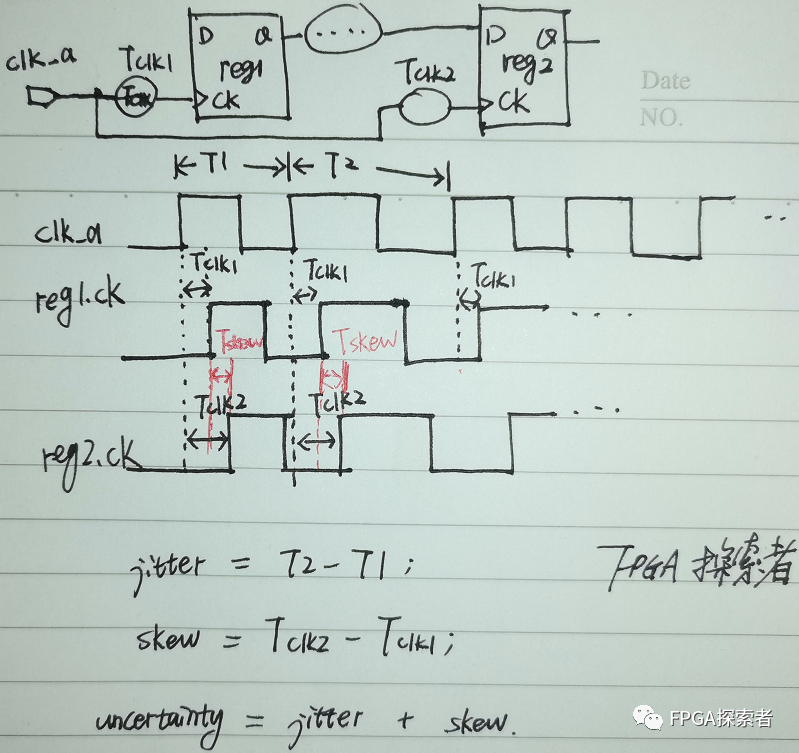 clk_a
Tclk1
D Q
reg1
CK
....
Tclk2
D Q
reg2
CK
Date
NO.
T1 T2
clk_a
..
Tclk1 Tclk1 Tclk1
reg1.ck
....
Tskew Tskew
Tclk2 Tclk2
....
reg2.ck
jitter = T2 - T1;
FPGA 探索者
skew = Tclk2 - Tclk1;
uncertainty = jitter + skew.
FPGA探索者